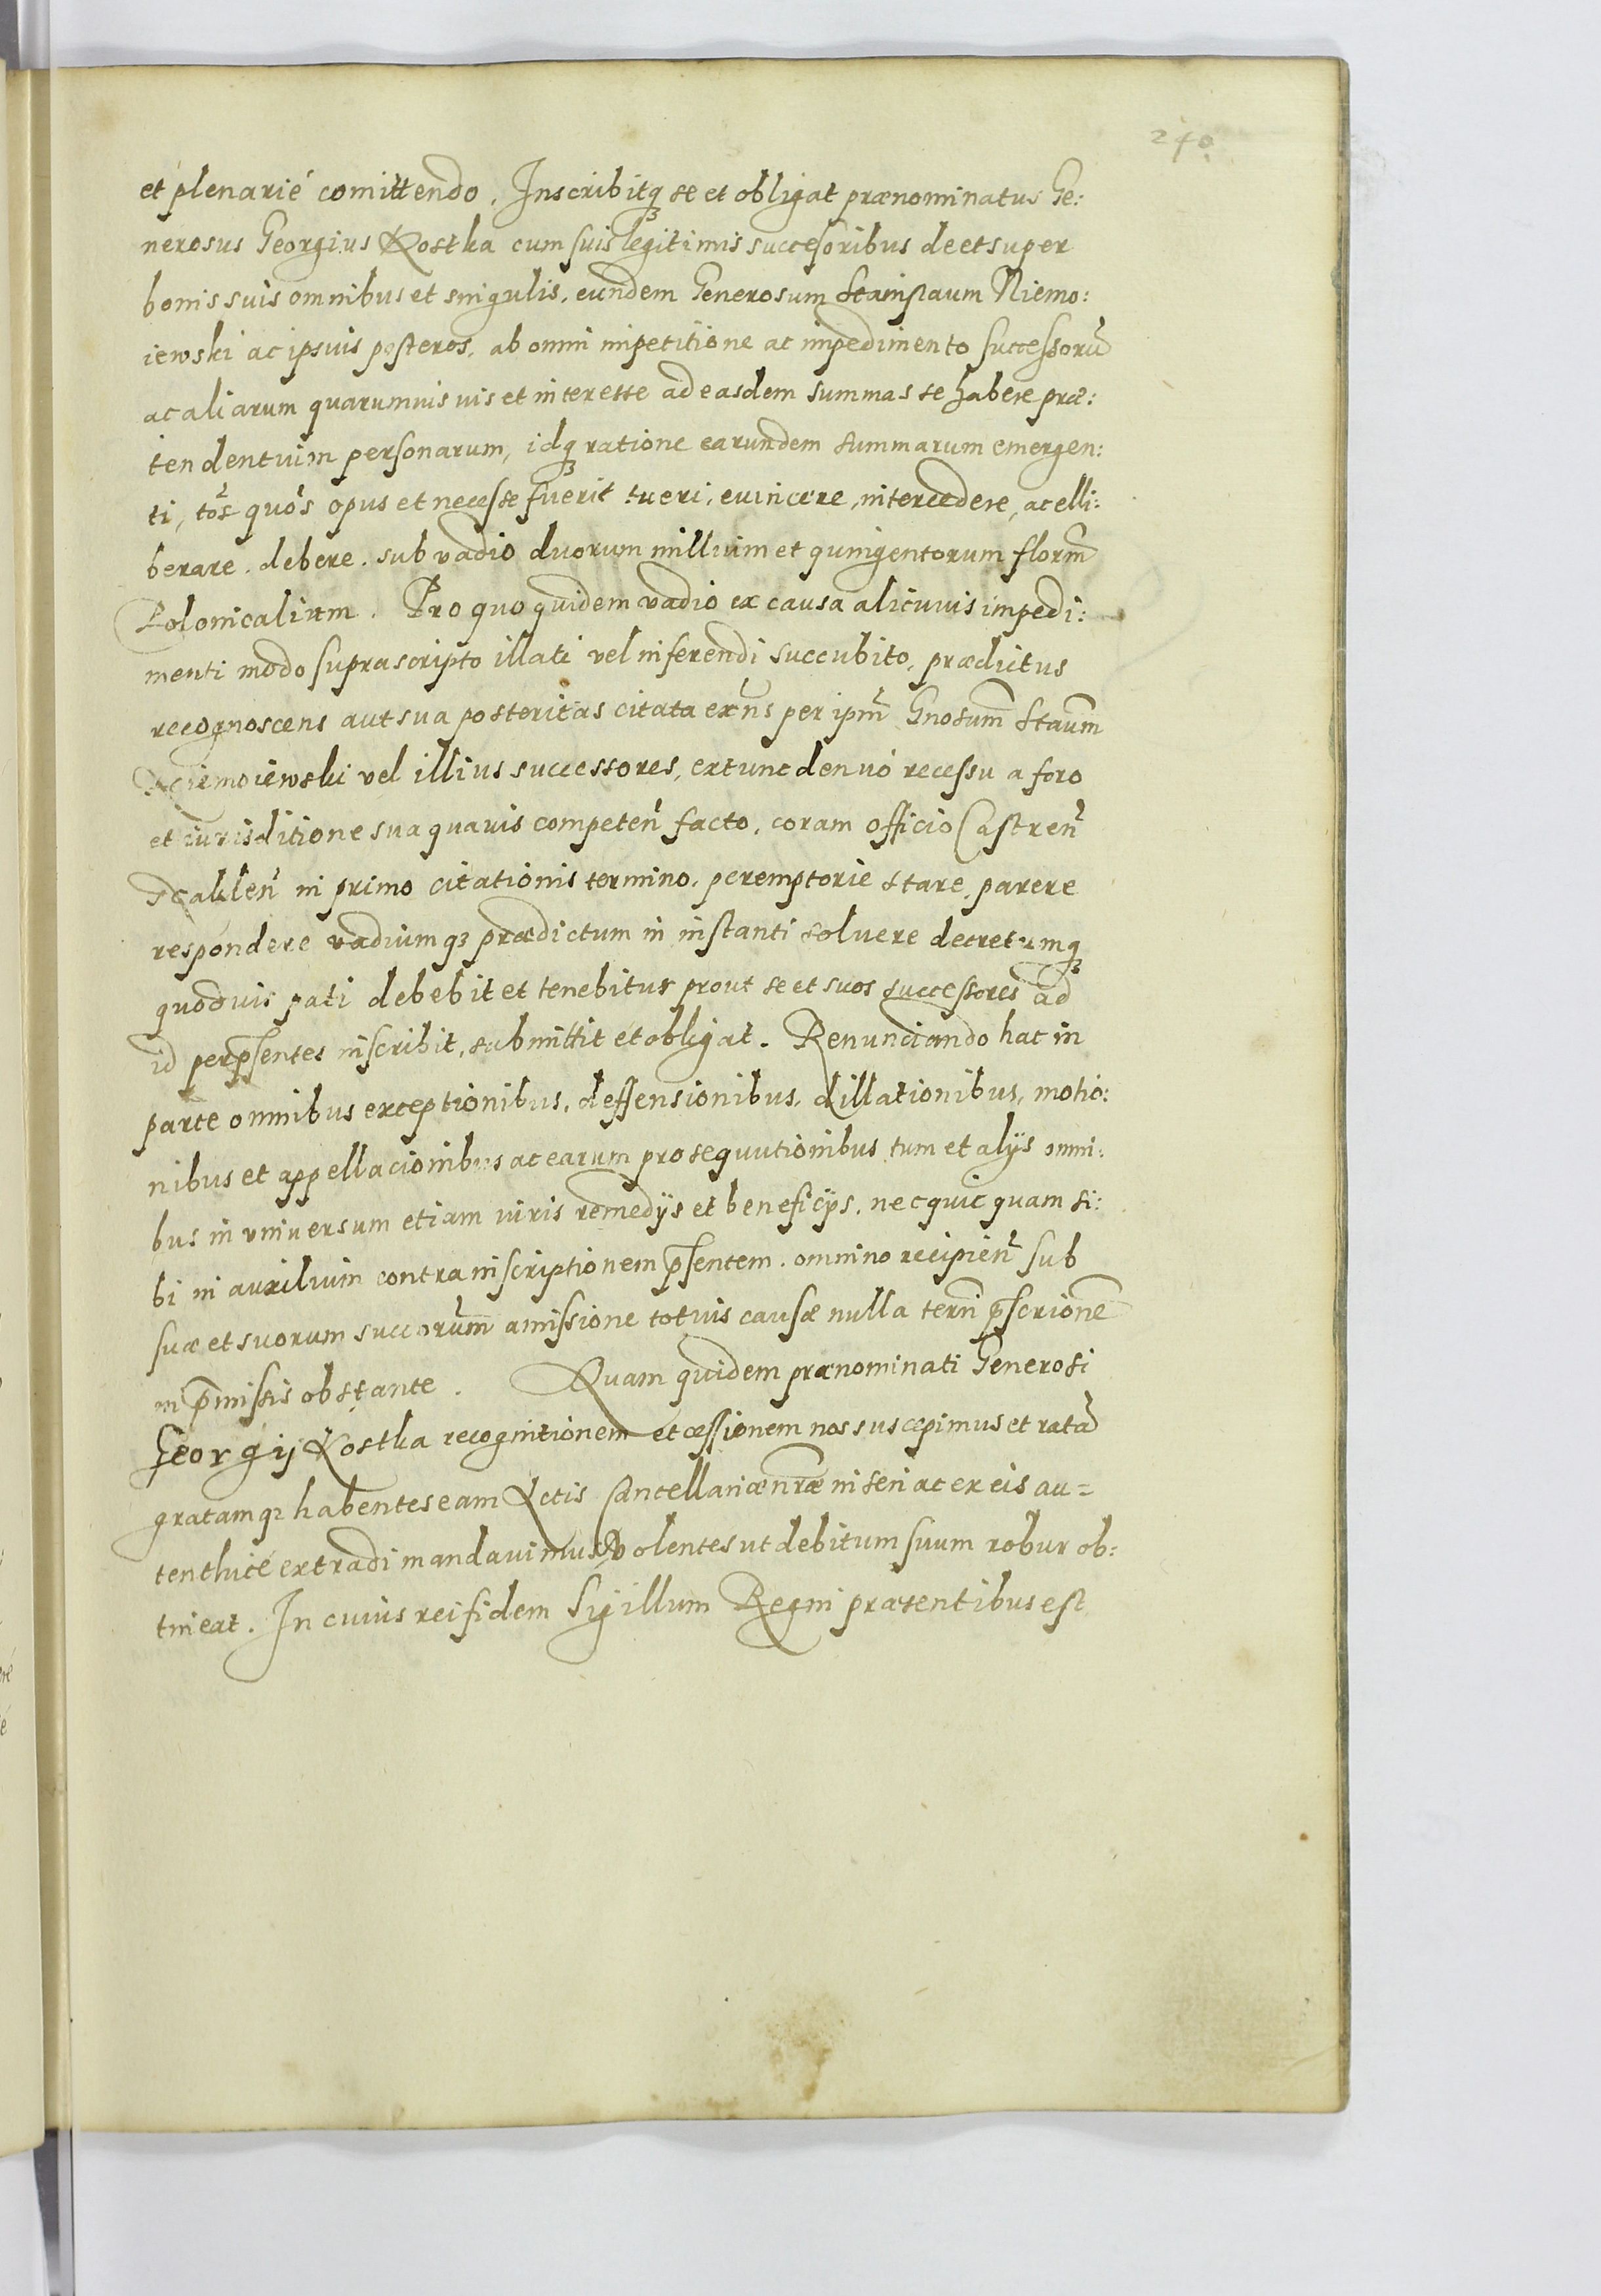 240
et plenarié comittendo. Inscribitq₃ se et obligat prænominatus Ge:
nerosus Georgius Kostka cum suis legitimis successoribus de et super
bonis suis omnibus et singulis, eundem Generosum Stanislaum Niemo:
iewski ac ipsius posteros, ab omni impetitione ac impedimento successorū
ac aliarum quarumuis uis et interesse ad easdem summas se habere præ:
tendentium personarum, idq₃ ratione earundem summarum emergen:
ti, tos̃ quos̃ opus et necesse fuerit tueri, euincere, intercedere, ac elli:
berare. debere. sub vadio duorum millium et quingentorum florm̃
Polonicalium. Pro quo quidem vadio ex causa alicuius impedi:
menti modo suprascripto illati vel inferendi succubito, prædictus
recognoscens aut sua posteritas citata exñs per ipm̃ Gnosum̃ Staum̃
Niemoiewski vel illius successores, extunc denuó recessu a foro
et iurisditione sua quauis competeñ facto, coram officio Castreñ
Hallen̄ in primo citationis termino, peremptorie stare, parere
respondere vadiumq₃ prædictum in instanti soluere decretumq₃
quoduis pati debebit et tenebitur prout se et suos successores ad
id per p̄sentes inscribit, submittit et obligat. Renunciando hac in
parte omnibus exceptionibus, deffensionibus, dillationibus, motio:
nibus et appellacionibus ac earum prosequutionibus tum et alijs omni:
bus in vniuersum etiam iuris remedijs et beneficijs, nec quic quam si:
bi in auxilium contra inscriptionem p̄sentem. omnino recipieñ sub
suæ et suorum succorum̃ amissione totius causæ nulla terrñ p̄scrionē
in p̄missis obstante. Quam quidem prænominati Generosi
Georgij Kostka recognitionem et cessionem nos suscepimus et ratā
gratamq₃ habentes eam Actis Cancellariæ nr̃æ inseri ac ex eis au=
tenthicé extradi mandauimus Volentes ut debitum suum robur ob:
tineat. In cuius rei fidem Sigillum Regni præsentibus est